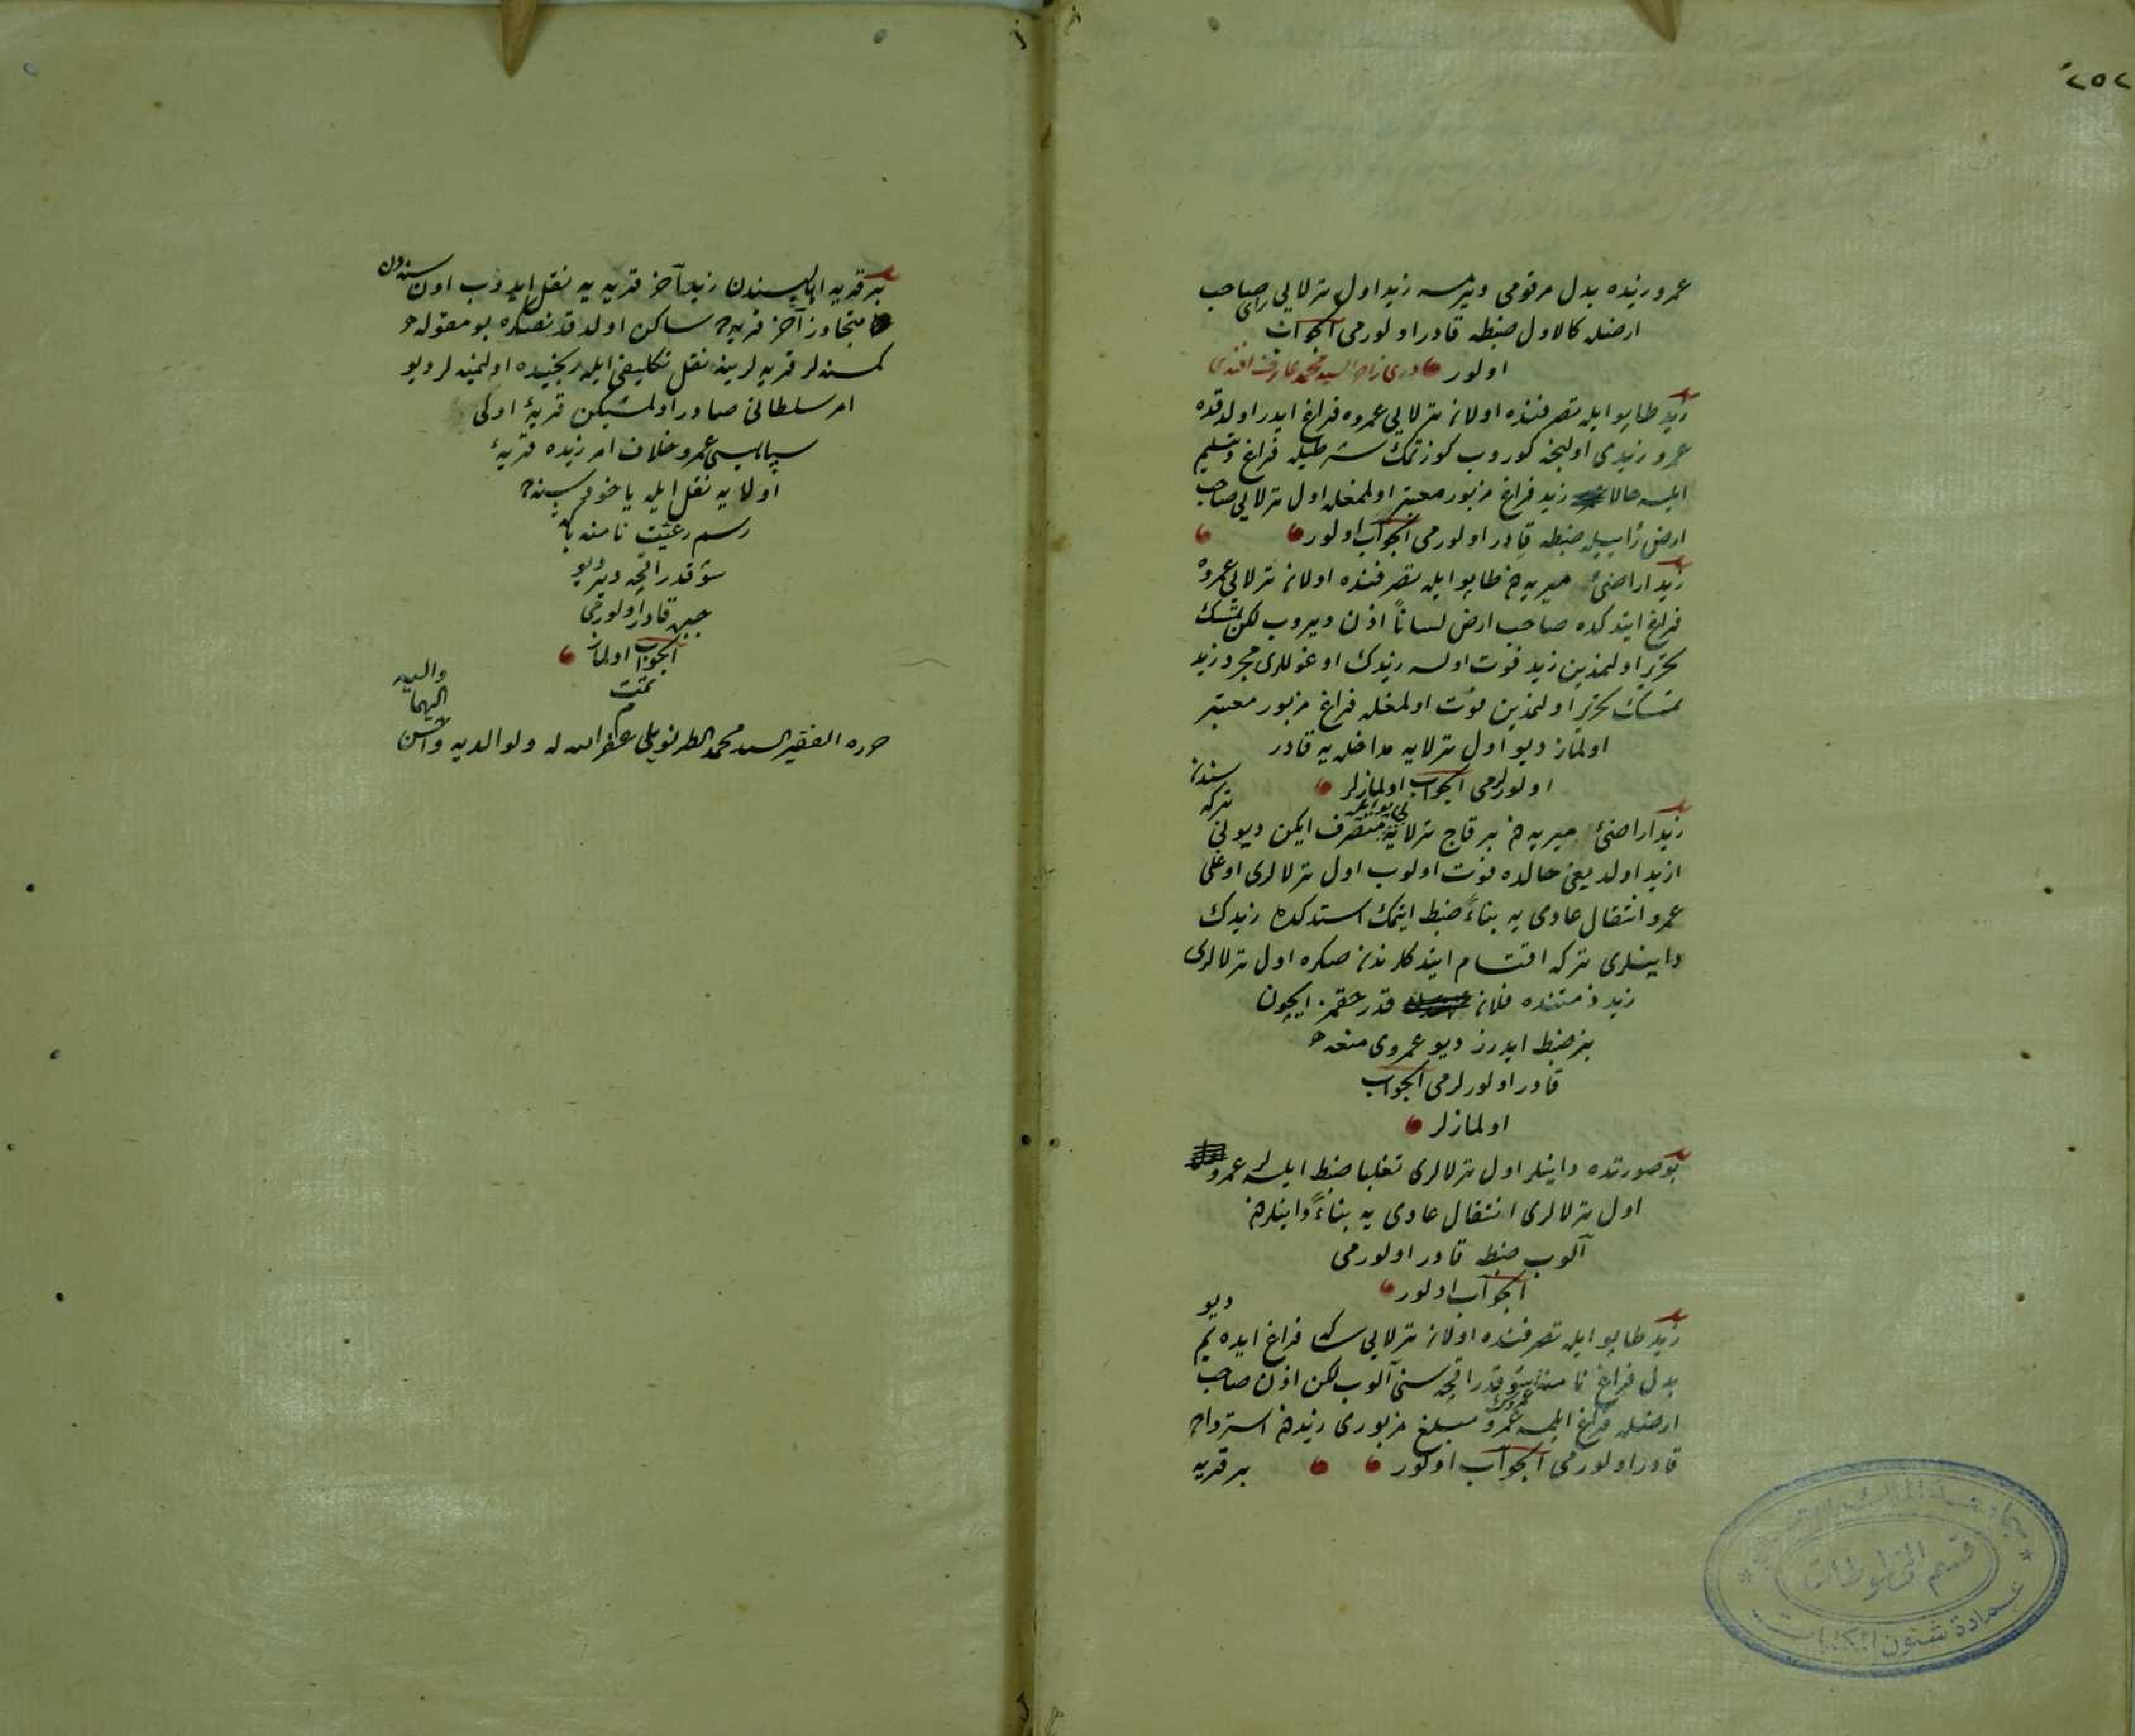 ٢٥٢
عمرو زيده بدل مرقومى ويرمسه زيد اول ترلايى رأى صاحب
ارضله كالاول ضبطه قادر اولورمى الجواب
اولور درى زاده السيد محمد عارف افندى
زيد طاپو ايله تصرفنده اولان ترلايى عمروه فراغ ايدر اولدقده
عمرو زيدى اولنجه كوروب كوزتمك شرطيله فراغ وتسليم
ايلسه حالا زيد فراغ مزبور معتبر اولمغله اول ترلايى صاحب
ارض رأييله ضبطه قادر اولورمى الجواب اولور
زيد اراضئ ميريه دن طاپو ايله تصرفنده اولان ترلايى عمروه
فراغ ايتدكده صاحب ارض لساناً اذن ويروب لكن تمسك
تحرير اولنمدين زيد فوت اولسه زيدك اوغوللرى مجرد زيد
تمسك تحرير اولنمدين فوت اولمغله فراغ مزبور معتبر
اولماز ديو اول ترلايه مداخله يه قادر
اولورلرمى الجواب اولمازلر
زيد اراضئ ميريه دن بر قاچ ترلايه طاپو ايله متصرف ايكن ديونى تركه سندن
ازيد اولديغى حالده فوت اولوب اول ترلالرى اوغلى
عمرو انتقال عادى يه بناءً ضبط ايتمك استدكده زيدك
داينلرى تركه اقتسام ايتدكلرندن صكره اول ترلالرى
زيد ذمتنده فلان قدر حقمز ايچون
بز ضبط ايدرز ديو عمروى منعه
قادر اولورلرمى الجواب
اولمازلر
بو صورتده داينلر اول ترلالرى تغلبا ضبط ايلسه لر عمرو
اول ترلالرى انتقال عادى يه بناءً داينلردن
آلوب ضبطه قادر اولورمى
الجواب اولور
زيد طاپو ايله تصرفنده اولان ترلايى سكا فراغ ايده يم ديو
بدل فراغ نامنه عمرودن شو قدر اقچه سنى آلوب لكن اذن صاحب
ارضله فراغ ايلمسه عمرو مبلغ مزبورى زيددن استرداده
قادر اولورمى الجواب اولور بر قريه
قسم المخطوطات
عمادة شئون المكتبات
بر قريه اهاليسندن زيد آخر قريه يه نقل ايدوب اون سنه دن
متجاوز آخر قريه ده ساكن اولدقدنصكره بو مقوله
كمسنه لر قريه لرينه نقل تكليفى ايله رنجيده اولنميه لر ديو
امر سلطانى صادر اولمشيكن قريۀ اولى
سپاهيسى عمرو خلاف امر زيده قريۀ
اولايه نقل ايله ياخود سنه ده
رسم رعيت نامنه بكا
شو قدر اقچه وير ديو
جبره قادر اولورمى
الجواب اولماز
تمت
م
حرره الفقير السيد محمد الطرنويلى غفر الله له ولوالديه واحسن
اليهما واليه